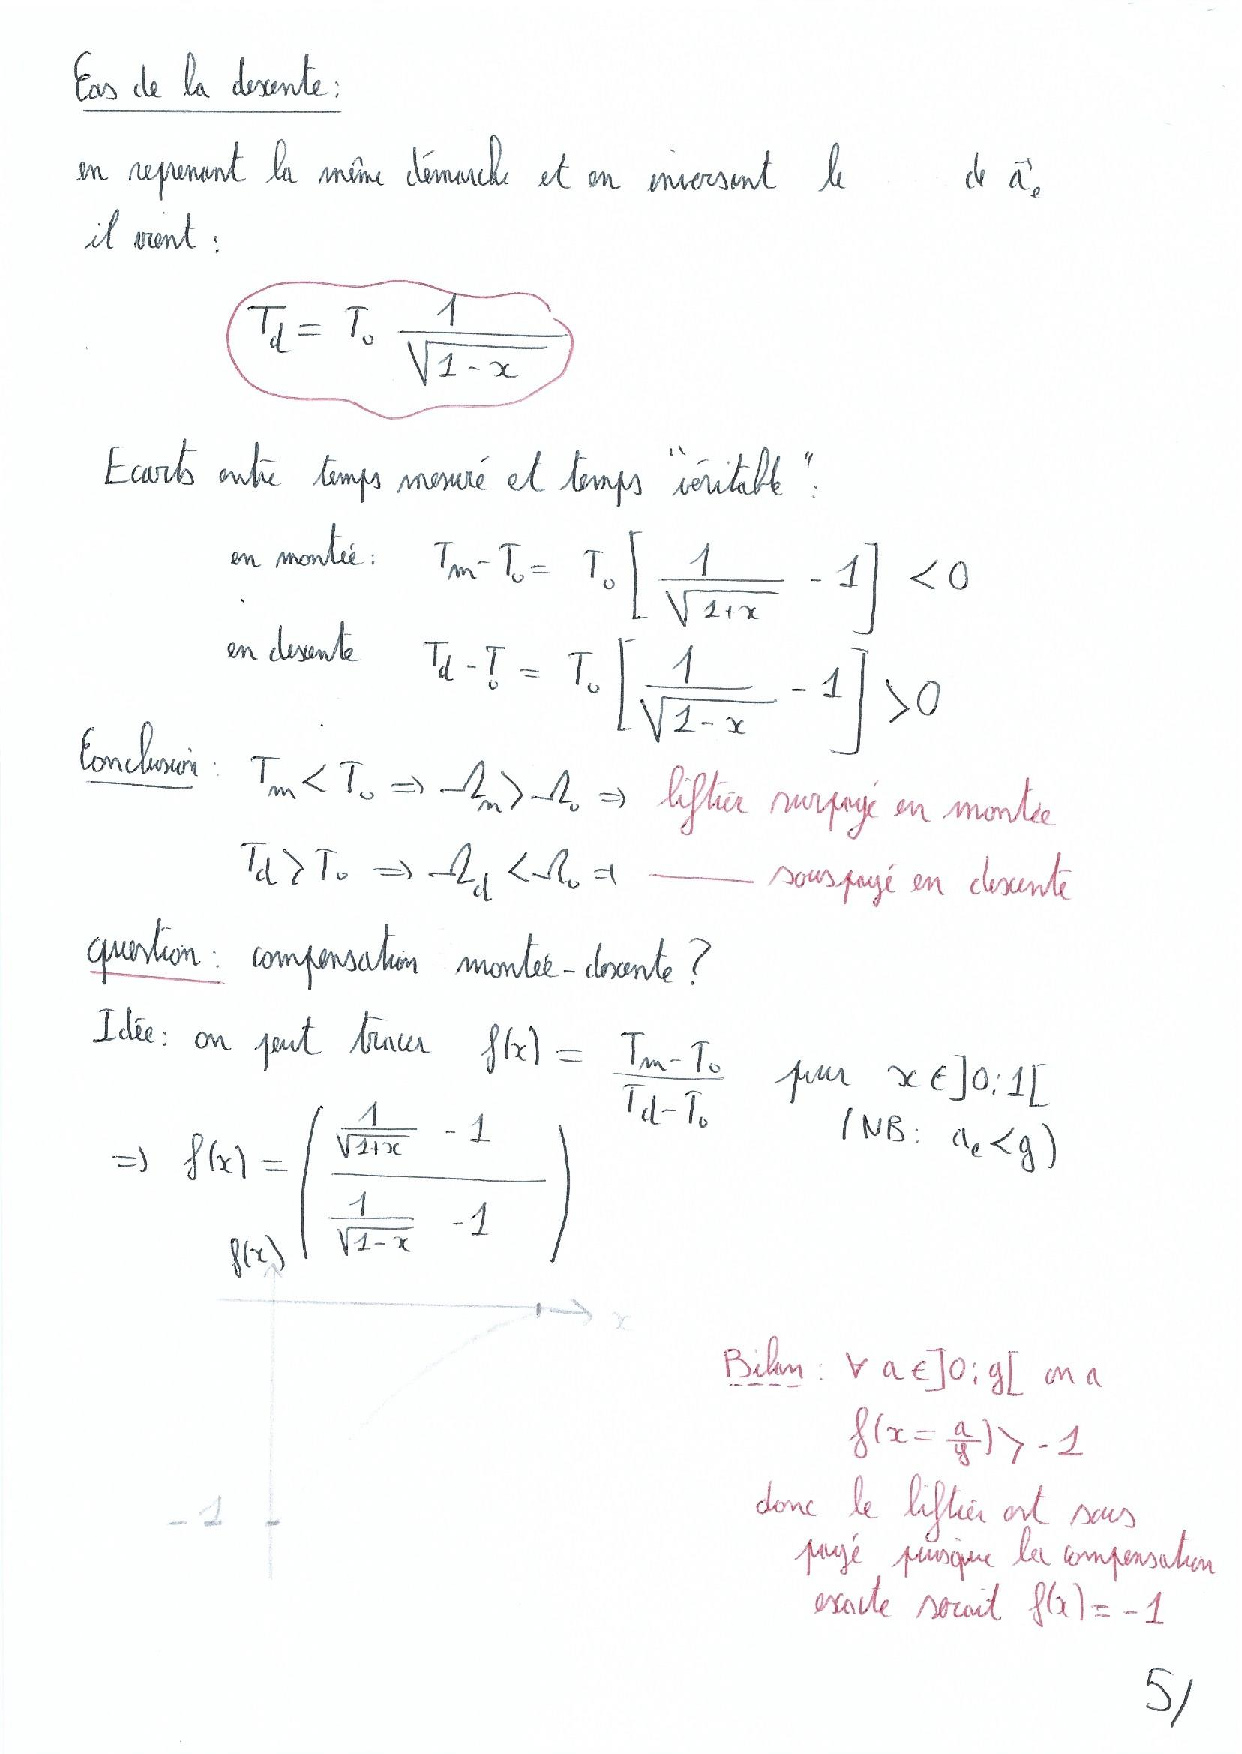 Cas de la descente :
en reprenant la même démarche et en inversant le de a⃗e
il vient :
Td = T₀ 1/√(1-x)
Ecarts entre temps mesuré et temps "véritable" :
en montée : Tm - T₀ = T₀ [1/√(1+x) - 1] < 0
en descente Td - T₀ = T₀ [1/√(1-x) - 1] > 0
Conclusion : Tm < T₀ ⇒ Ωm > Ω₀ ⇒ liftier surpayé en montée
Td > T₀ ⇒ Ωd < Ω₀ ⇒ —— sous payé en descente
question : compensation montée-descente ?
Idée : on peut tracer f(x) = (Tm - T₀)/(Td - T₀) pour x ∈ ]0;1[
(NB : ae < g)
⇒ f(x) = ((1/√(1+x) - 1)/(1/√(1-x) - 1))
f(x)
x
-1
Bilan : ∀ a ∈ ]0;g[ on a
f(x = a/g) > -1
donc le liftier est sous
payé, puisque la compensation
exacte serait f(x) = -1
5/